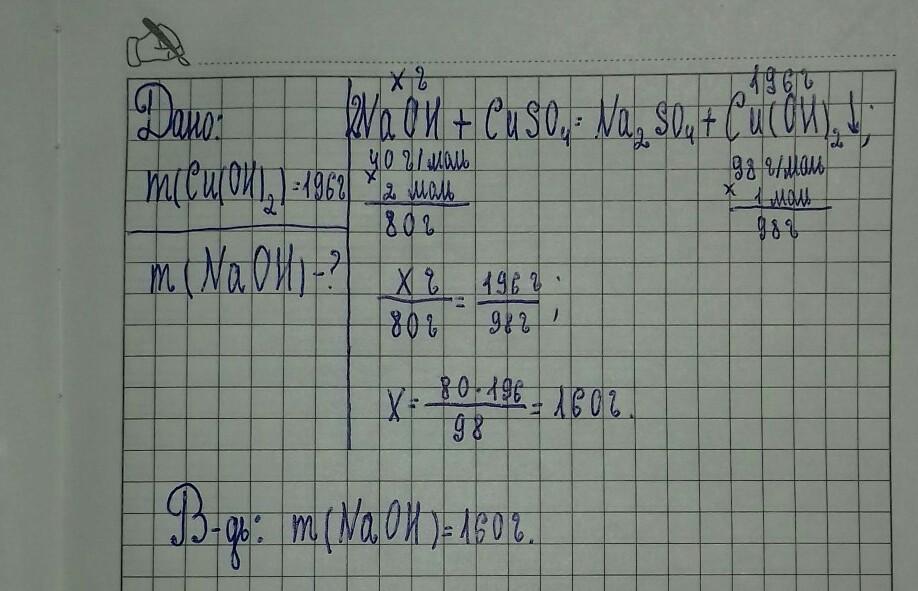 Дано:
m(Cu(OH)₂)=196г
m(NaOH)-?
x г
196г
2NaOH + CuSO₄ = Na₂SO₄ + Cu(OH)₂↓;
40 г/моль
× 2 моль
80г
98 г/моль
× 1 моль
98г
x г / 80г = 196г / 98г;
x = 80·196 / 98 = 160г.
В-дь: m(NaOH)=160г.